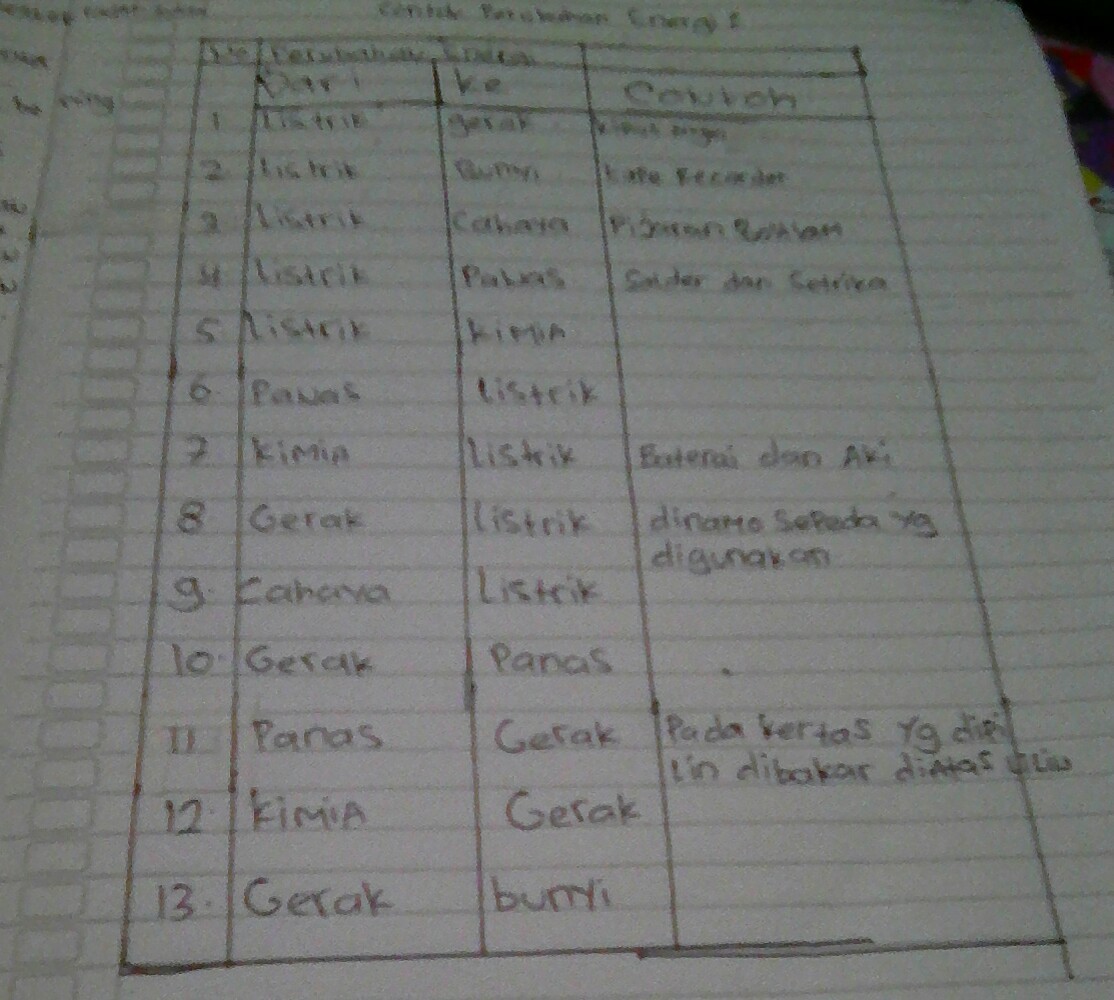 Contoh Perubahan Energi
No Perubahan Energi
Dari ke Contoh
1 Listrik gerak kipat angin
2 Listrik Bunyi tape Recorder
3 Listrik Cahaya Pijaran Bohlam
4 Listrik Panas Solder dan Setrika
5 Listrik kiMiA
6 Panas listrik
7 kiMiA listrik Baterai dan Aki
8 Gerak listrik dinaMo sepeda Yg
digunakan
9. Cahaya Listrik
10. Gerak Panas
11 Panas Gerak Pada kertas Yg dipi
lin dibakar diAtas
12. kiMiA Gerak
13. Gerak bunyi